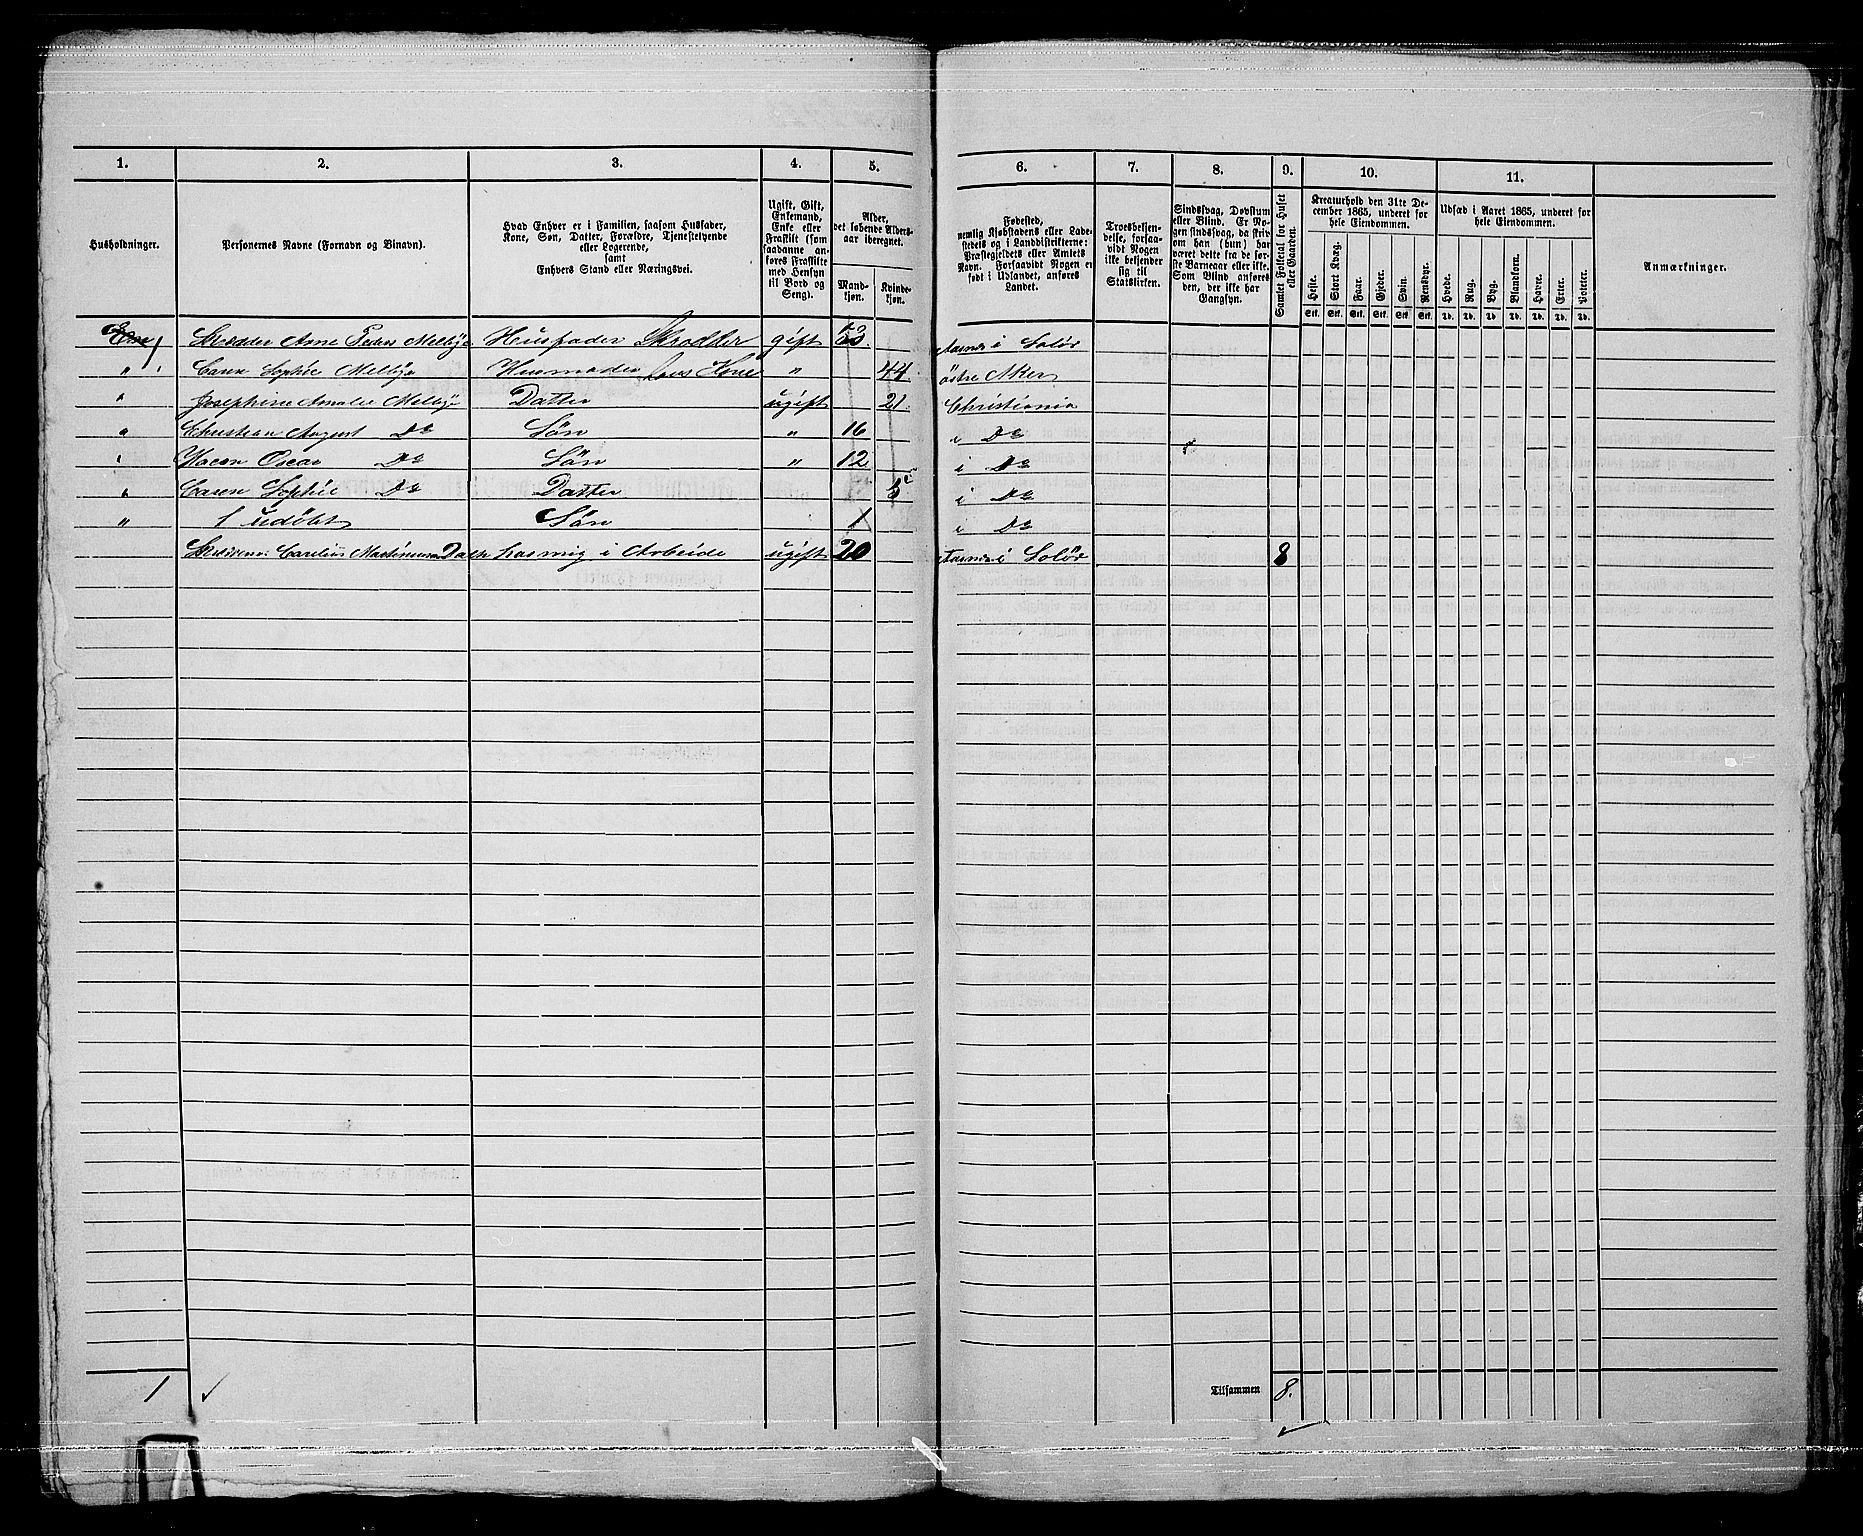 1. 2. 3. 4. 5. 6. 7. 8. 9. 10. 11.
Husholdninger.
Personernes Navne (Fornavn og Binavn).
Hvad Enhver er i Familien, saasom Husfader,
Kone, Søn, Datter, Forældre, Tjenestetyende
eller Logerende,
samt
Enhvers Stand eller Næringsvei.
Ugift, Gift,
Enkemand,
Enke eller
Fraskilt (som
saadanne an-
føres Fraskilte
med Hensyn
til Bord og
Seng).
Alder,
det løbende Alders-
aar iberegnet.
Mand-
kjøn.
Kvinde-
kjøn.
Fødested,
nemlig Kjøbstadens eller Lade-
stedets og i Landdistrikterne:
Præstegjeldets eller Amtets
Navn. Forsaavidt Nogen er
født i Udlandet, anføres
Landet.
Troesbekjen-
delse, forsaa-
vidt Nogen
ikke bekjender
sig til
Statskirken.
Sindssvag, Døvstum
eller Blind. Er No-
gen sindssvag, da skriv
om han (hun) har
været dette fra de før-
ste Barneaar eller ikke.
Som Blind anføres
den, der ikke har
Gangsyn.
Samlet Folketal for Huset
eller Gaarden.
Kreaturhold den 31te De-
cember 1865, underet for
hele Eiendommen.
Heste. Stort Kvæg. Faar. Gjeder. Svin. Rensdyr.
Stk. Stk. Stk. Stk. Stk. Stk.
Udsæd i Aaret 1865, underet for
hele Eiendommen.
Hvede. Rug. Byg. Blandkorn. Havre. Erter. Poteter.
Td. Td. Td. Td. Td. Td. Td.
Anmærkninger.
1 Arne Peders Melbye Husfader Skrædder gift 53. i Solør
" Caren Sophie Melbye Husmoder hans Kone " 44. østre Aker
" Josephine Amalie Melbye Datter ugift 21. Christiania
" Christian August Do Søn " 16 i Do
" Oscar Do Søn " 12 i Do
" Caren Sophie Do Datter i Do
" 1 udøbt Søn 1 i Do
i Arbeide ugift 20 i Solør 8
1 Tilsammen 8.